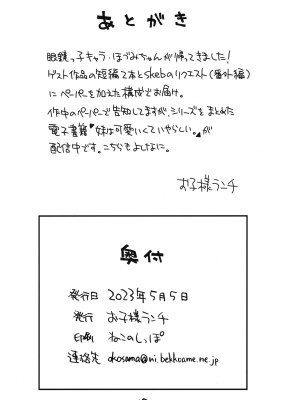 あとがき
眼鏡っ子キャラ・ほづみちゃんが帰ってきました!
ゲスト作品の短編2本とskebのリクエスト(番外編)
にペーパーを加えた構成でお届け。
作中のペーパーで告知してますが、シリーズをまとめた
電子書籍『妹は可愛いくていやらしい。』が
配信中です。こちらもよしなに。
お子様ランチ
奥付
発行日 2023年5月5日
発行 お子様ランチ
印刷 ねこのしっぽ
連絡先 okosama@ni.bekkoame.ne.jp